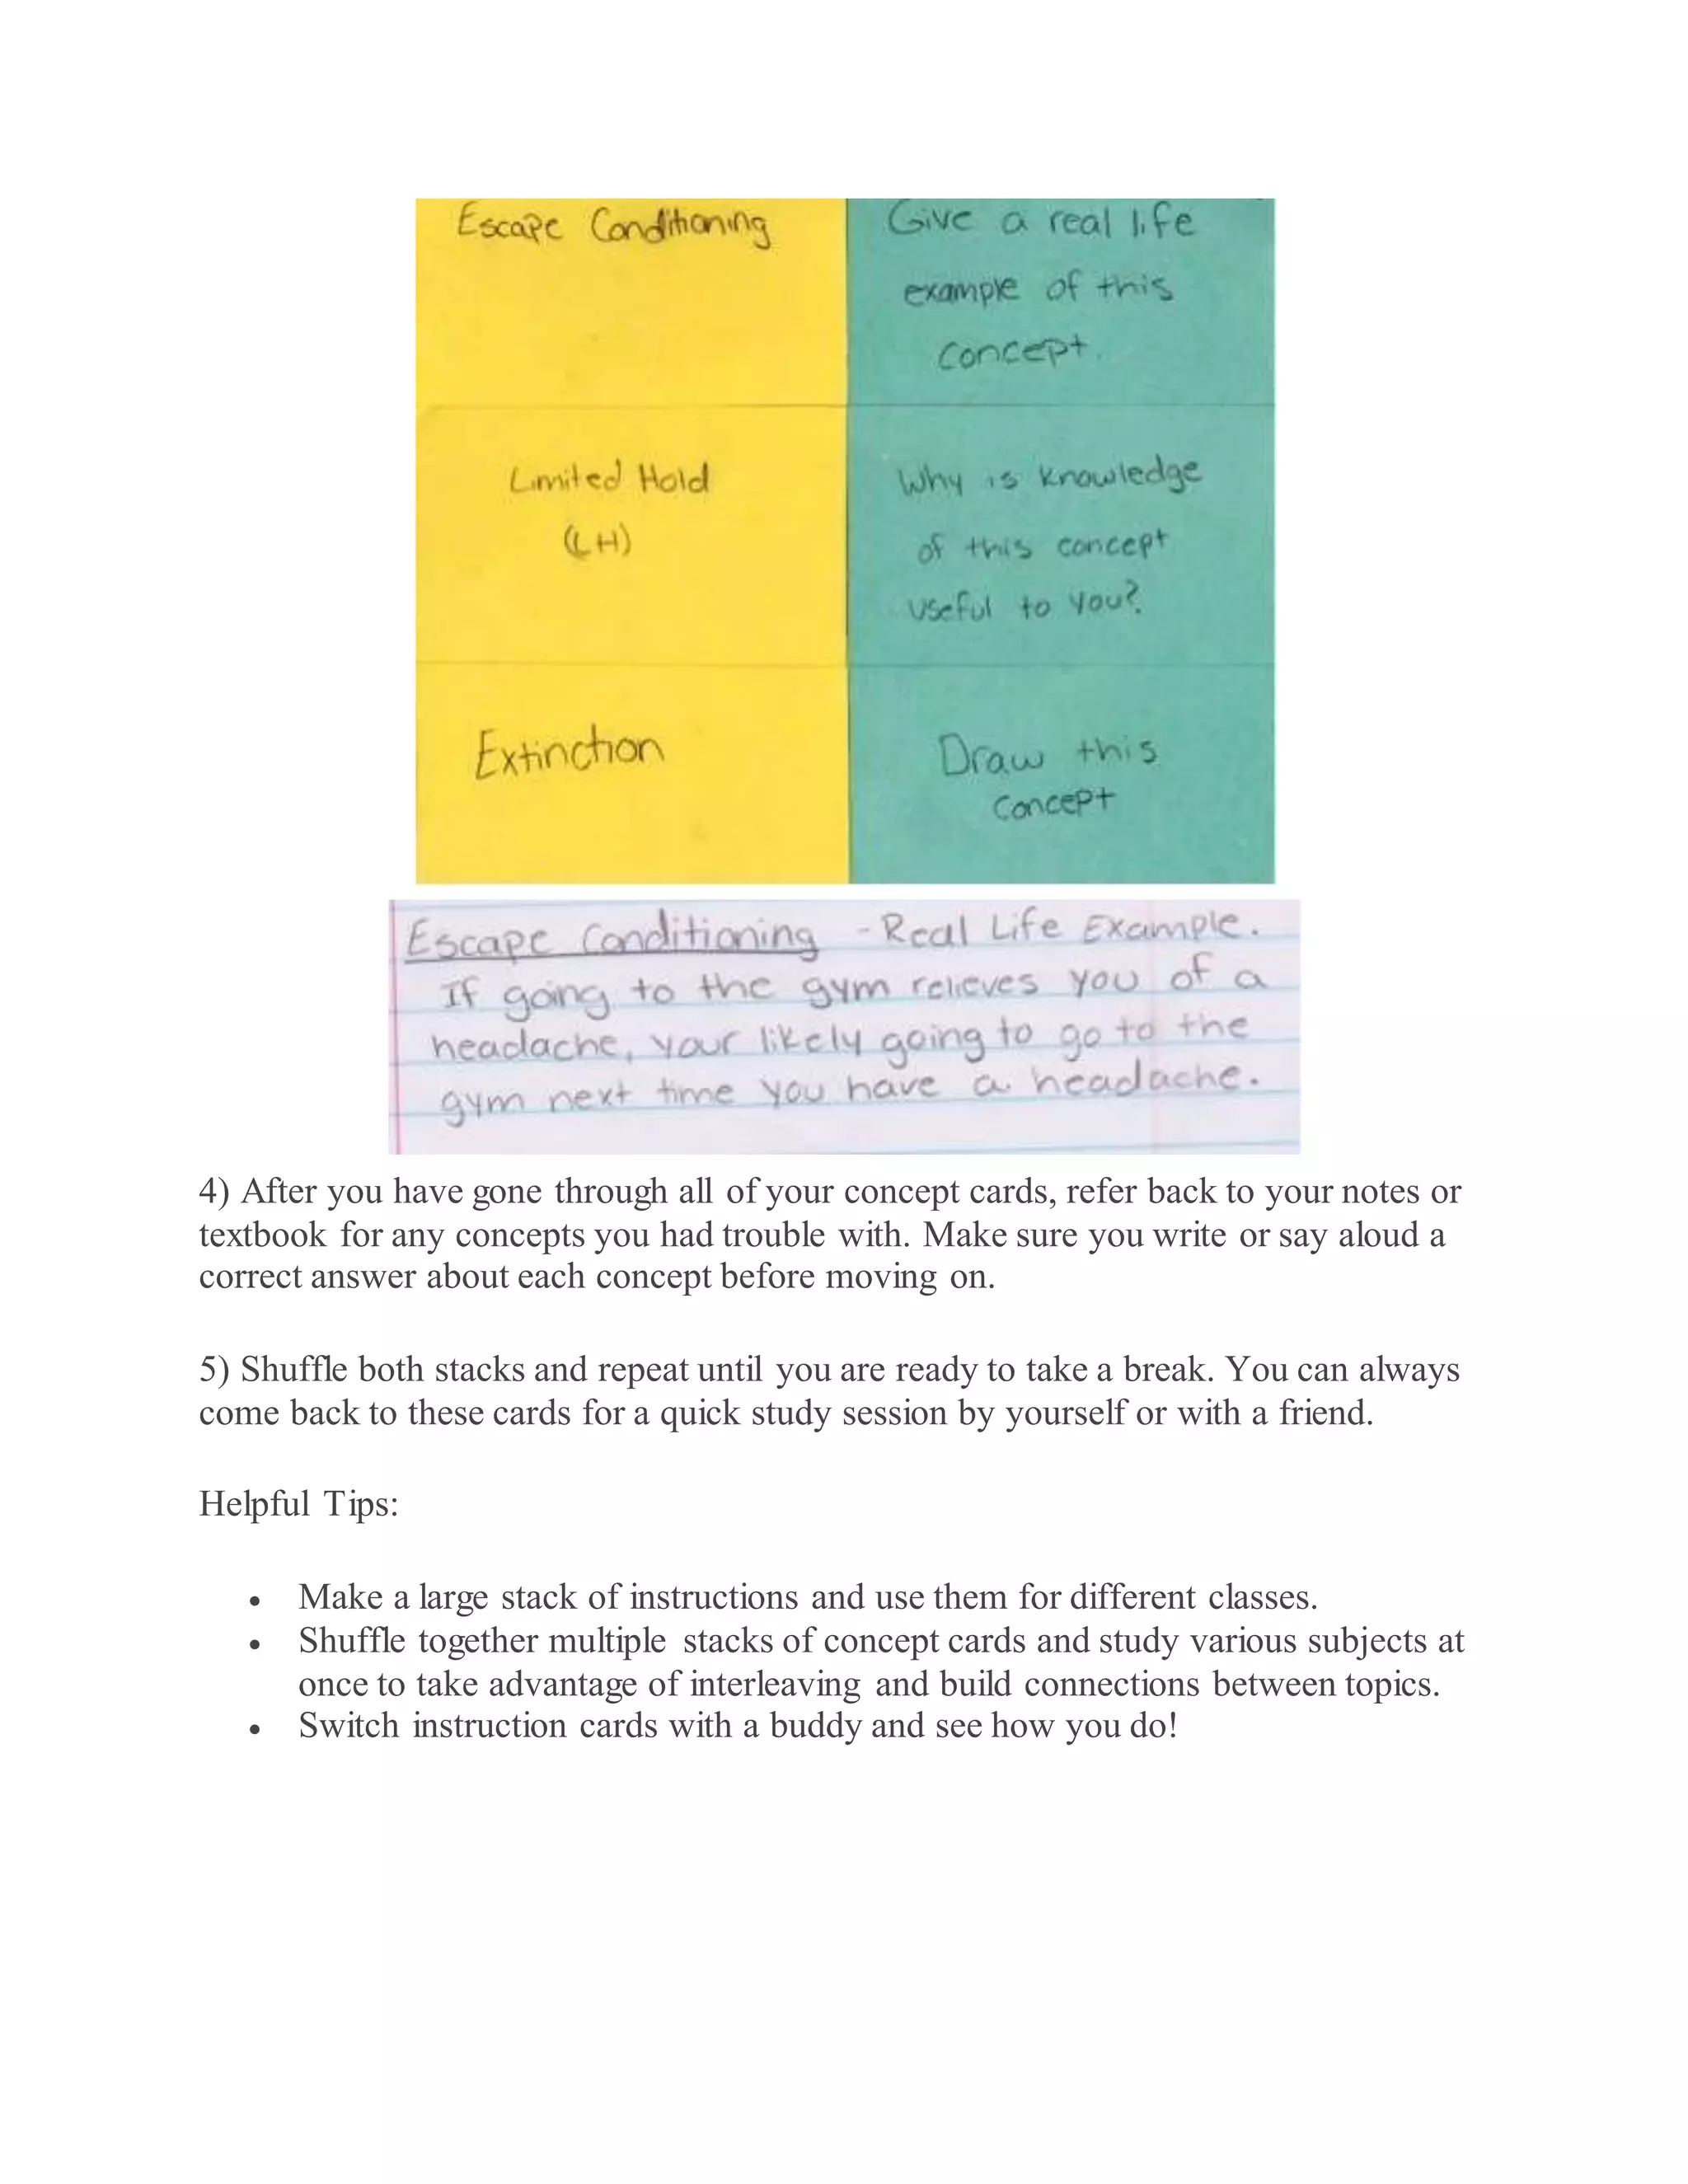 Escape Conditioning
Give a real life
example of this
concept.
Limited Hold
(LH)
Why is knowledge
of this concept
useful to you?
Extinction
Draw this
concept
Escape Conditioning - Real Life Example.
If going to the gym relieves you of a
headache, your likely going to go to the
gym next time you have a headache.
4) After you have gone through all of your concept cards, refer back to your notes or
textbook for any concepts you had trouble with. Make sure you write or say aloud a
correct answer about each concept before moving on.
5) Shuffle both stacks and repeat until you are ready to take a break. You can always
come back to these cards for a quick study session by yourself or with a friend.
Helpful Tips:
• Make a large stack of instructions and use them for different classes.
• Shuffle together multiple stacks of concept cards and study various subjects at
once to take advantage of interleaving and build connections between topics.
• Switch instruction cards with a buddy and see how you do!